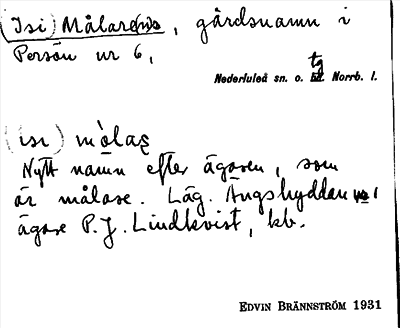 (Isi) Målare(ns), gårdsnamn i
Persön nr 6,
Nederluleå sn. o. tg Norrb. l.
(isı) mò̀laʂ
Nytt namn efter ägaren, som
är målare. Läg. Ängshyddan nr 1
ägare P. J. Lindkvist, kb.
EDVIN BRÄNNSTRÖM 1931